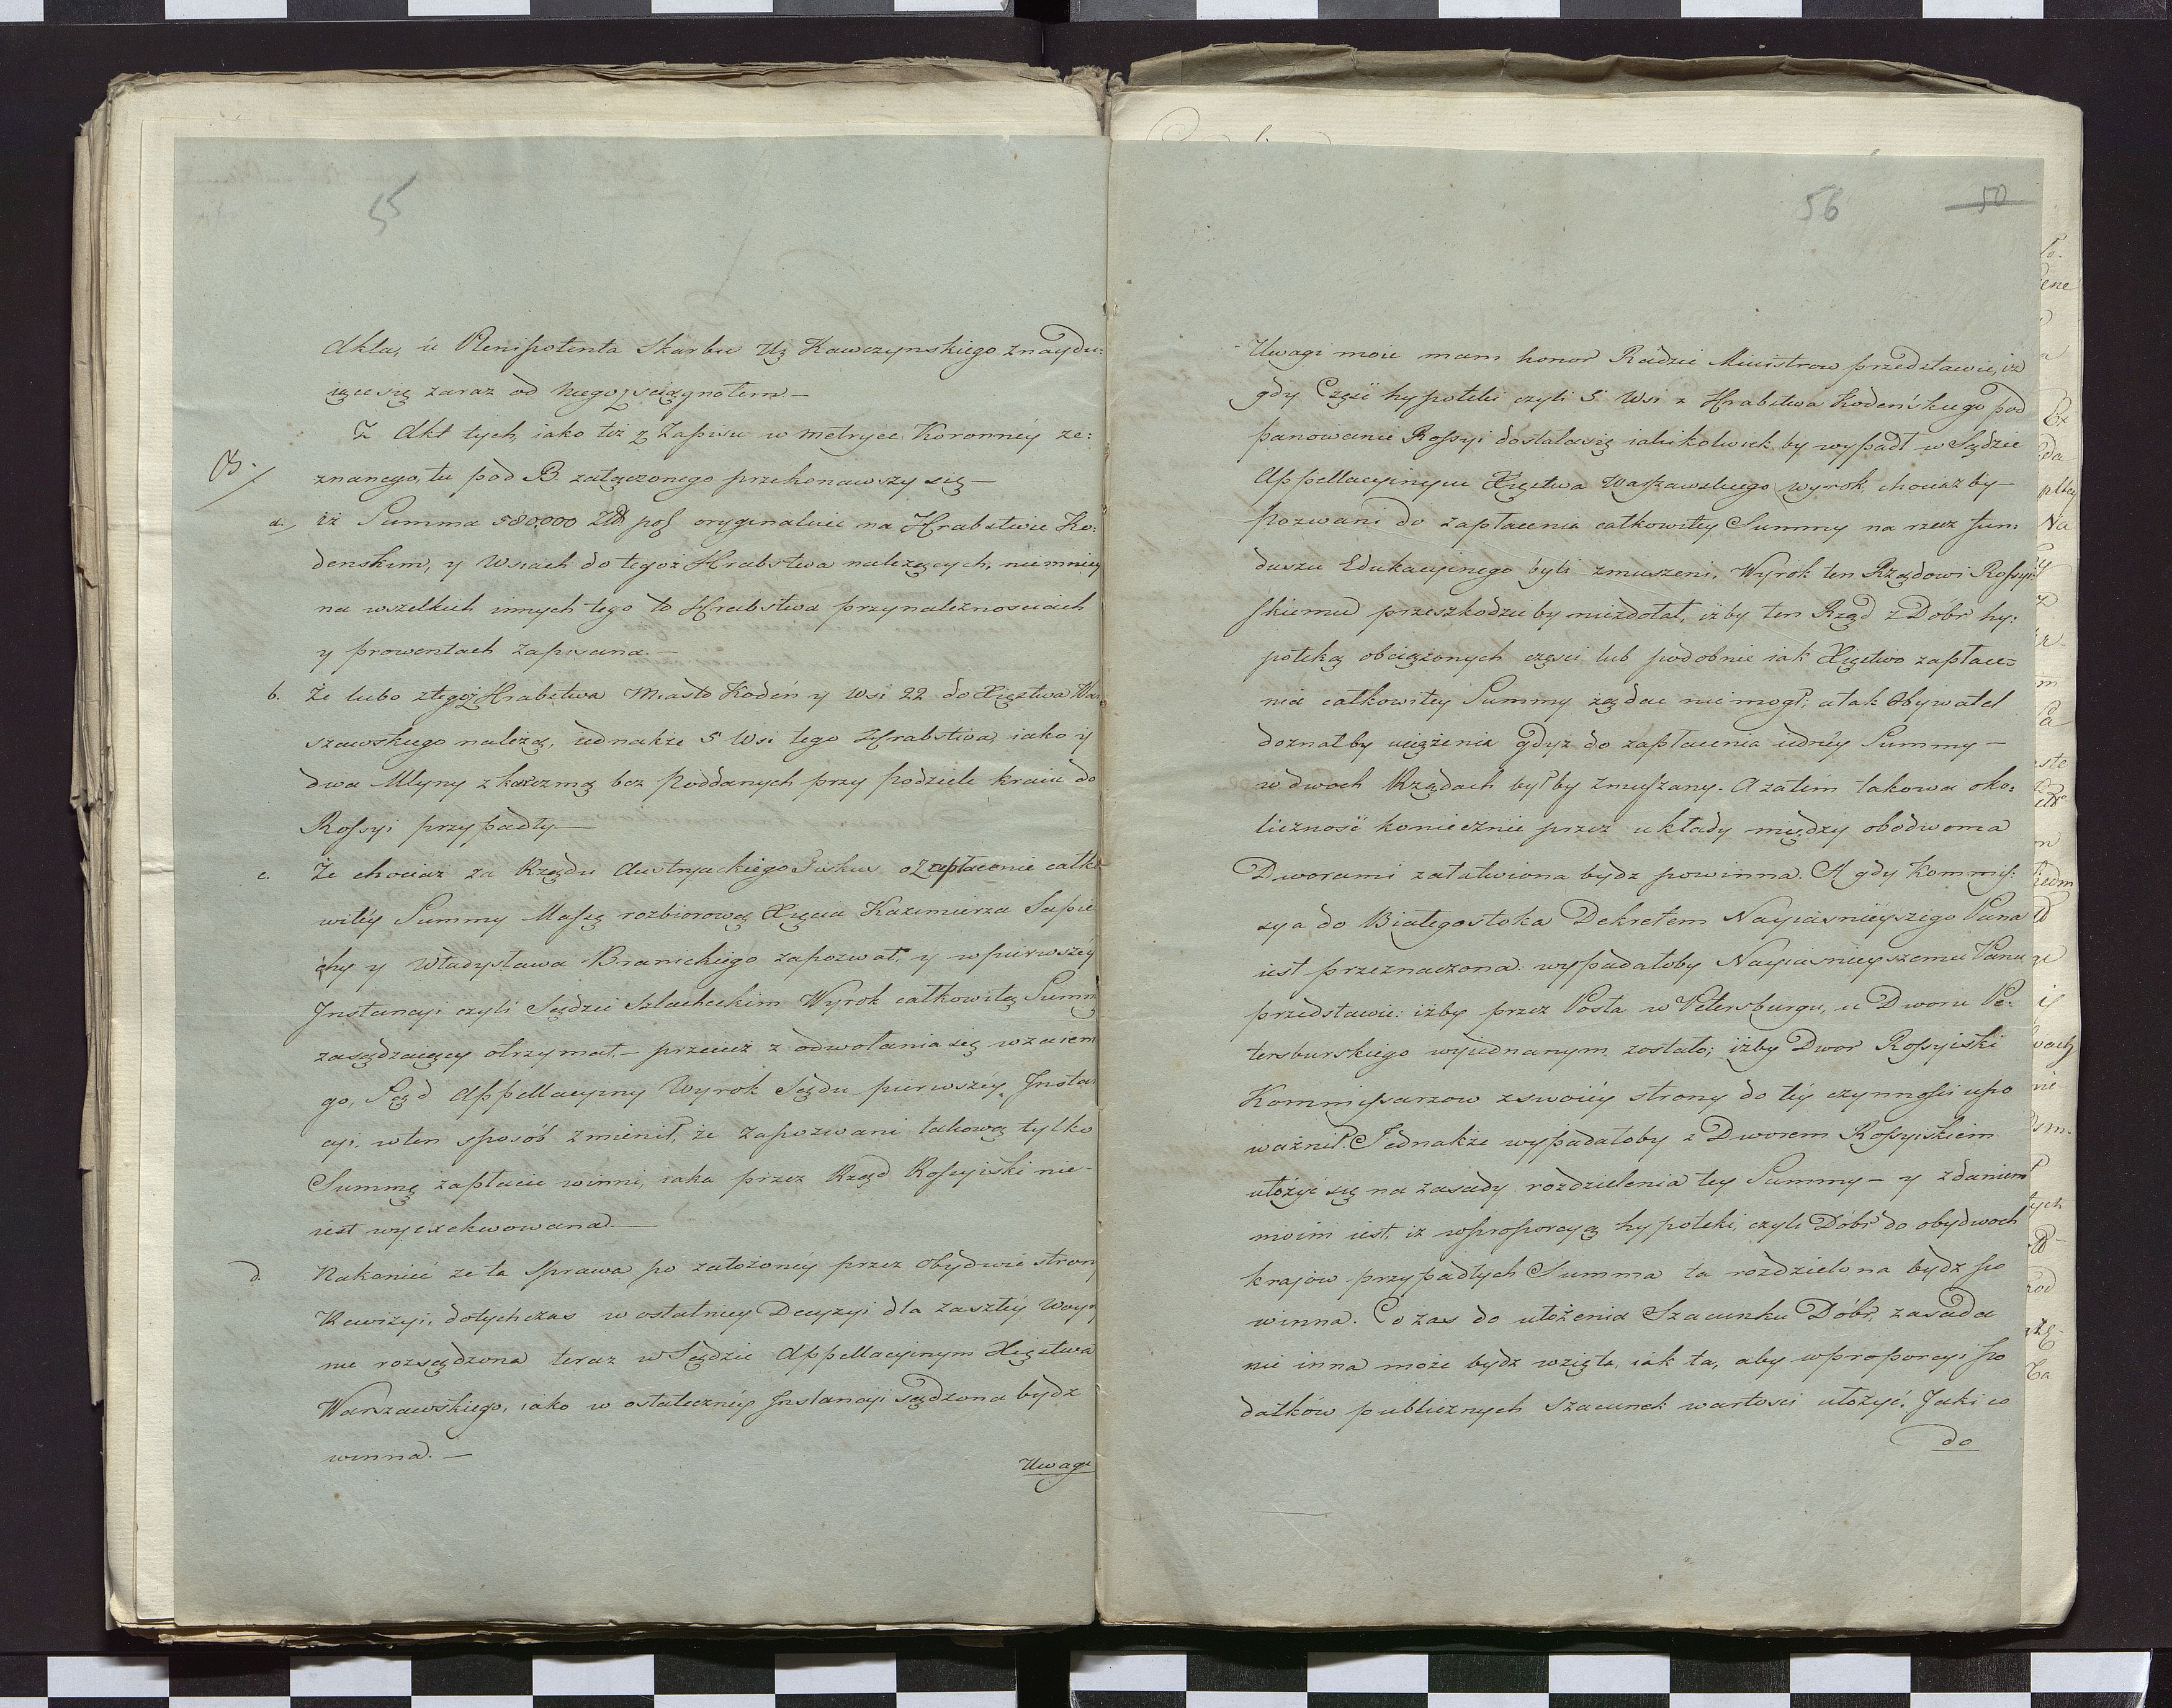 55
Akta, u Plenipotenta Skarbu Ur Kawczynskiego znaydu:
iące się zaraz od Niego sciągnołem —
Z Akt tych, iako też z Zapisu w Metryce Koronnéy ze:
B.
znanego, tu pod B. załączonego przekonawszy się —
a., iż Summa 580000 Złł. pol. oryginalnie na Hrabstwie Ko:
denskim, y Wsiach do tegoż Hrabstwa należących, niemniey
na wszelkich innych tego to Hrabstwa przynależnosciach
y prowentach zapisana. —
b. Że lubo z tegoż Hrabstwa Miasto Kodeń y Wsi 22 do Xięstwa War
szawskiego należą, iednakże 5 Wsi tego Hrabstwa, iako y
dwa Młyny z karczmą bez Poddanych przy podziele kraiu do
Rossyi przypadły —
c. Że chociaż za Rządu Austryackiego Fiskus o Zapłacenie całko
witéy Summy Massę rozbiorową Xięcia Kazimierza Sapie
chy y Władysława Branickiego zapozwał, y w pierwszéy
Instancyi czyli Sądzie Szlacheckim Wyrok całkowitą Summ
zasądzaiący otrzymał, — przecież z odwołania się wzaiem
go, Sąd Appellacyiny Wyrok Sądu pierwszéy Instan
cyi w ten sposób zmienił, że Zapozwani takową tylko
Summę zapłacić winni, iaka przez Rząd Rossyiski nie-
iest wyexekwowana. —
d. Nakoniec że ta Sprawa po założonéy przez Obydwie strony
Rewizyi, dotychczas w ostatniey Decyzyi dla zaszłéy Woyny
nie rozsądzona teraz w Sądzie Appellacyinym Xięstwa
Warszawskiego, iako w ostateczney Instancyi sądzona bydz
winna. —
Uwagi
56 50
Uwagi moie mam honor Radzie Ministrow przedstawić, iż
gdy Część hypoteki czyli 5 Wsi z Hrabstwa Kodeńskiego pod
panowanie Rossyi dostała się iakikolwiek by wypadł w Sądzie
Appellacyinym Xięstwa Warszawskiego wyrok chociaż by —
pozwani do zapłacenia całkowitey Summy na rzecz fun
duszu Edukacyinego byli zmuszeni, Wyrok ten Rządowi Rossyi
skiemu przeszkodzić by niezdołał, iżby ten Rząd z Dóbr hy:
poteką obciążonych części lub podobnie iak Xięstwo zapłace:
nia całkowitey Summy żądać nie mogł; a tak Obywatel
doznałby uciążenia gdyż do zapłacenia iednéy Summy —
w dwoch Rządach był by zmuszany. A zatém takowa oko:
liczność koniecznie przez układy między obodwoma
Dworami załatwiona bydz powinna. A gdy Kommis:
sya do Białegostoka Dekretem Nayiasnieyszego Pana
iest przeznaczona: wypadałoby Nayiasnieyszemu Panu
przedstawić: iżby przez Posła w Petersburgu, u Dworu Pe:
tersburskiego wyiednanym zostało; iżby Dwor Rossyiski
Kommissarzow z swoiéy strony do téy czynności upo
ważnił. Jednakże wypadałoby z Dworem Rossyiskiem
ułożyć się na zasady rozdzielenia tey Summy — y zdaniem
moim iest, iż w proporcyą hypoteki, czyli Dóbr do obydwoch
krajow przypadłych Summa ta rozdzielona bydz po
winna. Co zas do ułożenia Szacunku Dóbr, zasada
nie inna może bydz wzięta, iak ta, aby w proporcyi po
datków publicznych szacunek wartosci ułożyć. Jaki co
do